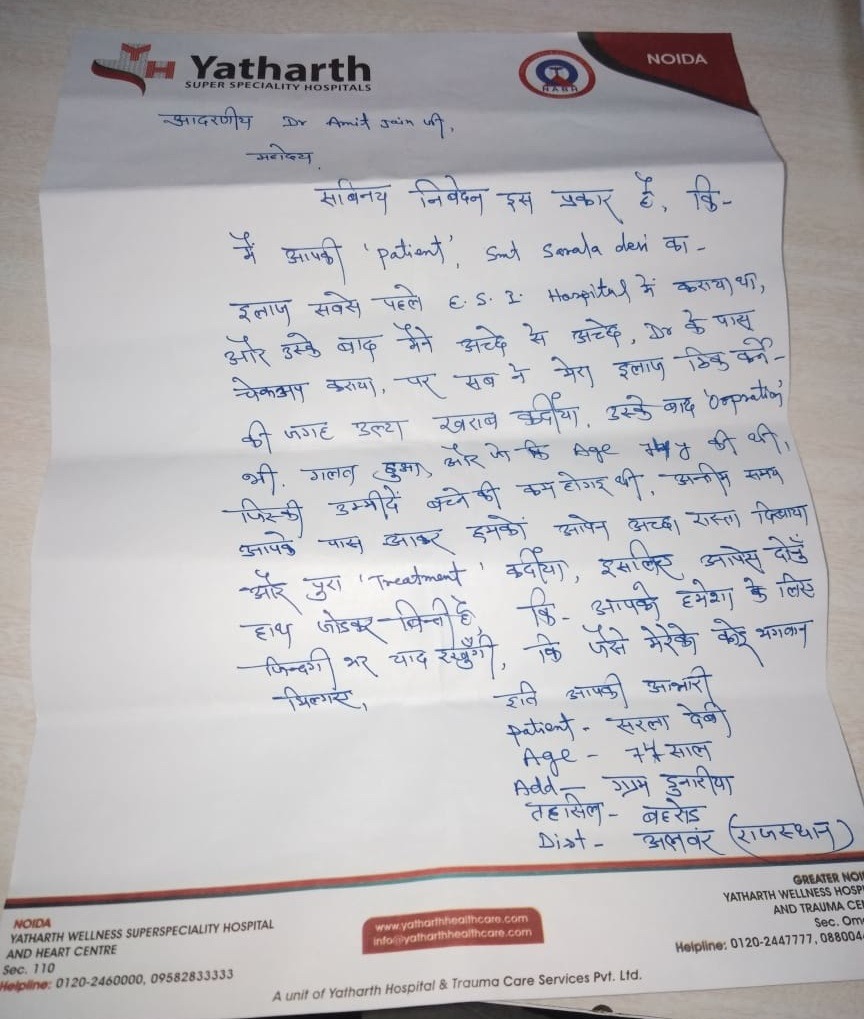 Yatharth
SUPER SPECIALITY HOSPITALS
NABH
NOIDA
आदरणीय Dr Amit Jain जी,
महोदय,
सविनय निवेदन इस प्रकार है, कि-
मैं आपकी 'patient', Smt Sarala devi का -
इलाज सबसे पहले E. S. I. Hospital में कराया था,
और उस्के बाद मैंने अच्छे से अच्छे, Dr के पास
चेकअप कराया, पर सब ने मेरा इलाज ठिक करने-
की जगह उल्टा खराब कर्दीया, उस्के बाद 'Oopration'
भी. गलत हुआ, और जो कि Age की थी,
जिस्की उम्मीदें बचने की कम होगइ थी, अन्तीम समय
आपके पास आकर हमको आपने अच्छा रास्ता दिखाया
और पुरा 'Treatment' कर्दीया, इसलिए आपसे दोनुँ
हाथ जोडकर बिन्ती है, कि- आपको हमेशा के लिए
जिन्दगी भर याद रखुँगी, कि जैसे मेरेको कोई भगवान
मिलगए,
इति आपकी आभारी
patient - सरला देवी
Age - 77 साल
Add - ग्राम डुनारीया
तहसिल - बहरोड
Dist - अलवर (राजस्थान)
NOIDA
YATHARTH WELLNESS SUPERSPECIALITY HOSPITAL
AND HEART CENTRE
Sec. 110
Helpline: 0120-2460000, 09582833333
www.yatharthhealthcare.com
info@yatharthhealthcare.com
GREATER NOI
YATHARTH WELLNESS HOSP
AND TRAUMA CE
Sec. Om
Helpline: 0120-2447777, 0880044
A unit of Yatharth Hospital & Trauma Care Services Pvt. Ltd.